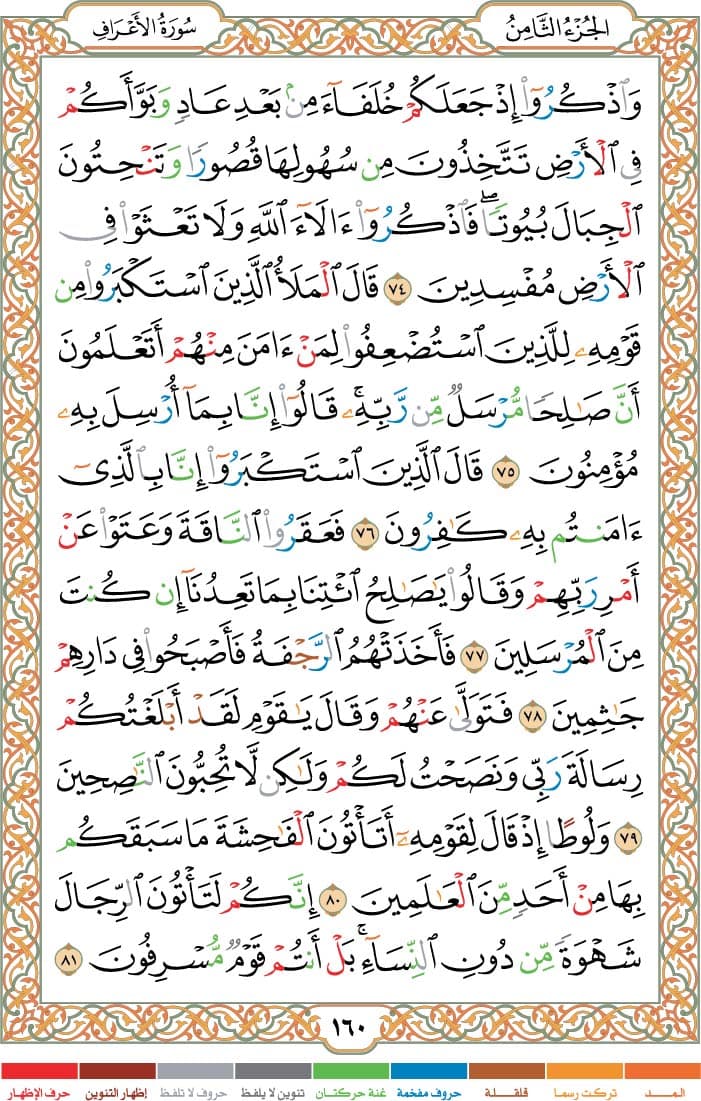 الجُزْءُ الثَّامِنُ
سُورَةُ الأَعْرَافِ
وَٱذْكُرُوٓا۟ إِذْ جَعَلَكُمْ خُلَفَآءَ مِنۢ بَعْدِ عَادٍ وَبَوَّأَكُمْ
فِى ٱلْأَرْضِ تَتَّخِذُونَ مِن سُهُولِهَا قُصُورًا وَتَنْحِتُونَ
ٱلْجِبَالَ بُيُوتًا ۖ فَٱذْكُرُوٓا۟ ءَالَآءَ ٱللَّهِ وَلَا تَعْثَوْا۟ فِى
ٱلْأَرْضِ مُفْسِدِينَ ٧٤ قَالَ ٱلْمَلَأُ ٱلَّذِينَ ٱسْتَكْبَرُوا۟ مِن
قَوْمِهِۦ لِلَّذِينَ ٱسْتُضْعِفُوا۟ لِمَنْ ءَامَنَ مِنْهُمْ أَتَعْلَمُونَ
أَنَّ صَٰلِحًا مُّرْسَلٌ مِّن رَّبِّهِۦ ۚ قَالُوٓا۟ إِنَّا بِمَآ أُرْسِلَ بِهِۦ
مُؤْمِنُونَ ٧٥ قَالَ ٱلَّذِينَ ٱسْتَكْبَرُوٓا۟ إِنَّا بِٱلَّذِىٓ
ءَامَنتُم بِهِۦ كَٰفِرُونَ ٧٦ فَعَقَرُوا۟ ٱلنَّاقَةَ وَعَتَوْا۟ عَنْ
أَمْرِ رَبِّهِمْ وَقَالُوا۟ يَٰصَٰلِحُ ٱئْتِنَا بِمَا تَعِدُنَآ إِن كُنتَ
مِنَ ٱلْمُرْسَلِينَ ٧٧ فَأَخَذَتْهُمُ ٱلرَّجْفَةُ فَأَصْبَحُوا۟ فِى دَارِهِمْ
جَٰثِمِينَ ٧٨ فَتَوَلَّىٰ عَنْهُمْ وَقَالَ يَٰقَوْمِ لَقَدْ أَبْلَغْتُكُمْ
رِسَالَةَ رَبِّى وَنَصَحْتُ لَكُمْ وَلَٰكِن لَّا تُحِبُّونَ ٱلنَّٰصِحِينَ
٧٩ وَلُوطًا إِذْ قَالَ لِقَوْمِهِۦٓ أَتَأْتُونَ ٱلْفَٰحِشَةَ مَا سَبَقَكُم
بِهَا مِنْ أَحَدٍ مِّنَ ٱلْعَٰلَمِينَ ٨٠ إِنَّكُمْ لَتَأْتُونَ ٱلرِّجَالَ
شَهْوَةً مِّن دُونِ ٱلنِّسَآءِ ۚ بَلْ أَنتُمْ قَوْمٌ مُّسْرِفُونَ ٨١
١٦٠
المــد تركت رسما قلقلة حروف مفخمة غنة حركتان تنوين لا يلفظ حروف لا تلفظ إظهار التنوين حرف الإظهار